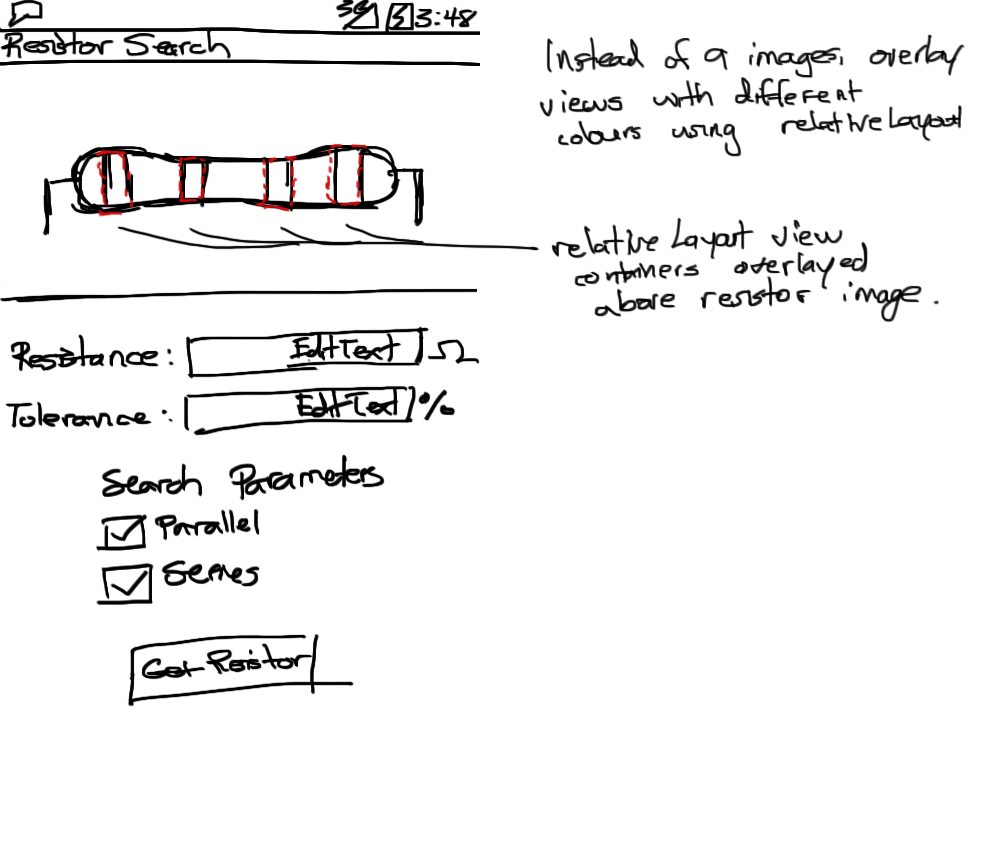 3G 3:48
Resistor Search
Instead of 9 images, overlay
views with different
colours using relativeLayout
relative Layout view
containers overlayed
above resistor image.
Resistance: EditText Ω
Tolerance: EditText %
Search Parameters
Parallel
Series
Get Resistor